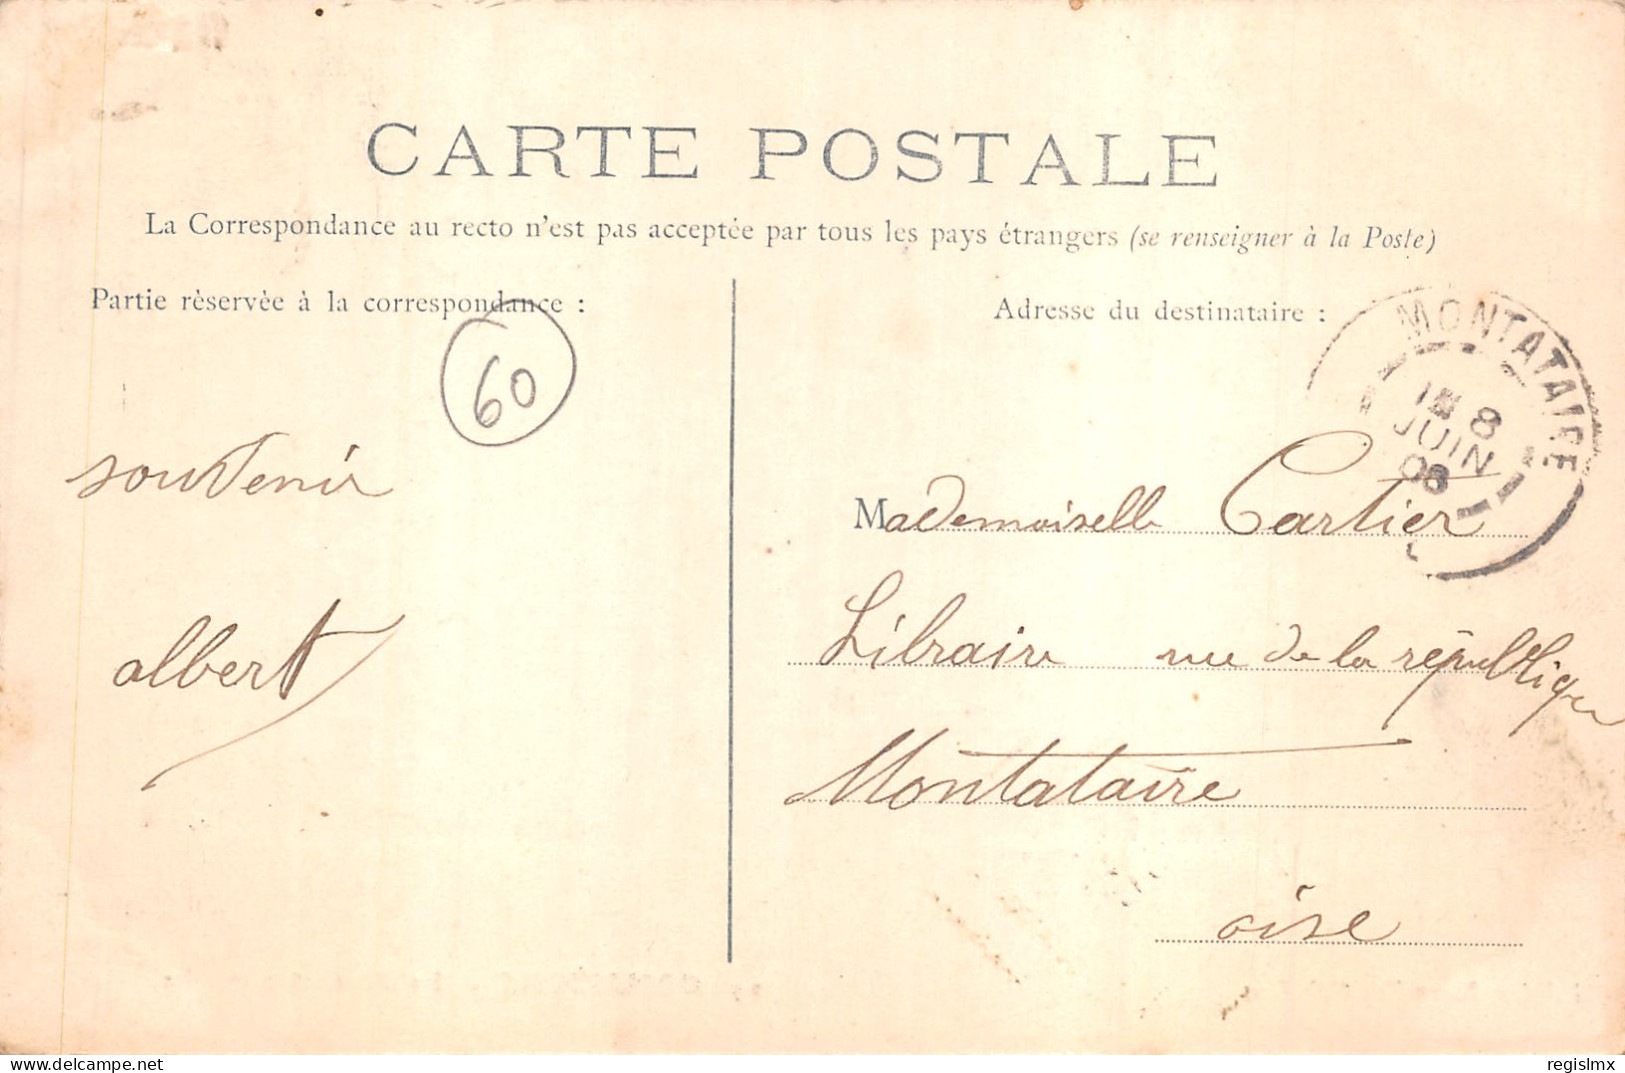 CARTE POSTALE
La Correspondance au recto n'est pas acceptée par tous les pays étrangers (se renseigner à la Poste)
Partie réservée à la correspondance :
60
souvenir
albert
Adresse du destinataire :
MONTATAIRE
8
JUIN
08
Mademoiselle Cartier
Libraire rue de la république
Montataire
oise
www.delcampe.net
regislmx